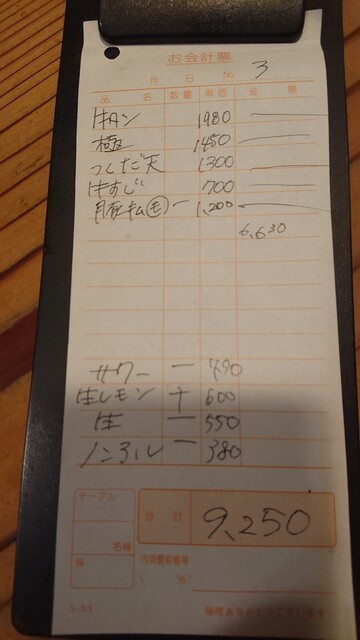 お会計票
月 日 No. 3
品 名 数量 単価 金 額
牛タン 1980
極 1450
つくだ天 1300
牛すじ 700
豚キム モ 一 1,200
6,630
サワー 一 490
生レモン 600
生 一 550
ノンアル 一 380
テーブル
名様
係
合 計 9,250
内消費税額等
( %)
毎度ありがとうございます